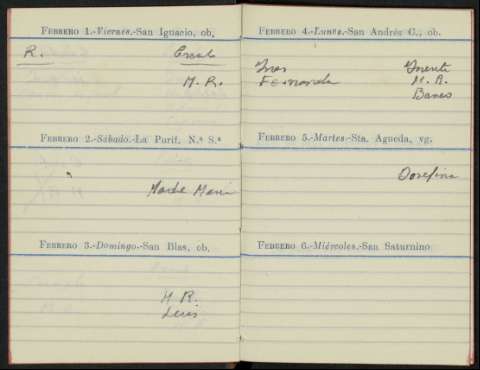 FEBRERO 1.-Viernes-San Ignacio, ob,
R.
M.R.
FEBRERO 2.-Sábado.-La Purif. N.ª S.ª
Madre
FEBRERO 3.-Domingo-San Blas, ob,
H R.
Luis
FEBRERO 4.-Lunes.-San Andrés C., ob.
Fernanda
M. R.
Banco
FEBRERO 5.-Martes-Sta. Agueda, vg.
Josefina
FEBRERO 6.-Miércoles.-San Saturnino